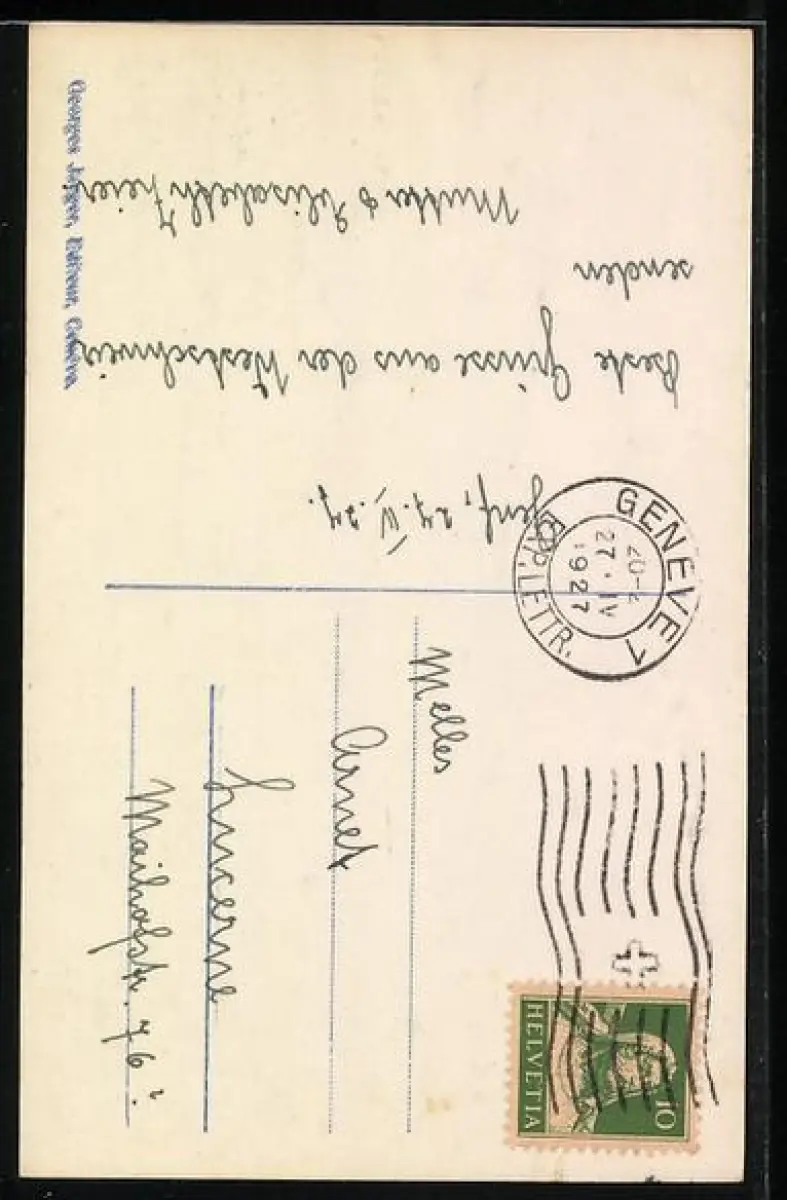 Genf, 27. IV. 27.
Beste Grüsse aus der Westschweiz
senden
Mutter & Elisabeth
Georges Jaeger, Editeur, Genève
GENEVE 1
27. IV
1927
EXP. LETTR.
Melles
Arnet
Lucerne
Maihofstr. 76²
HELVETIA
10